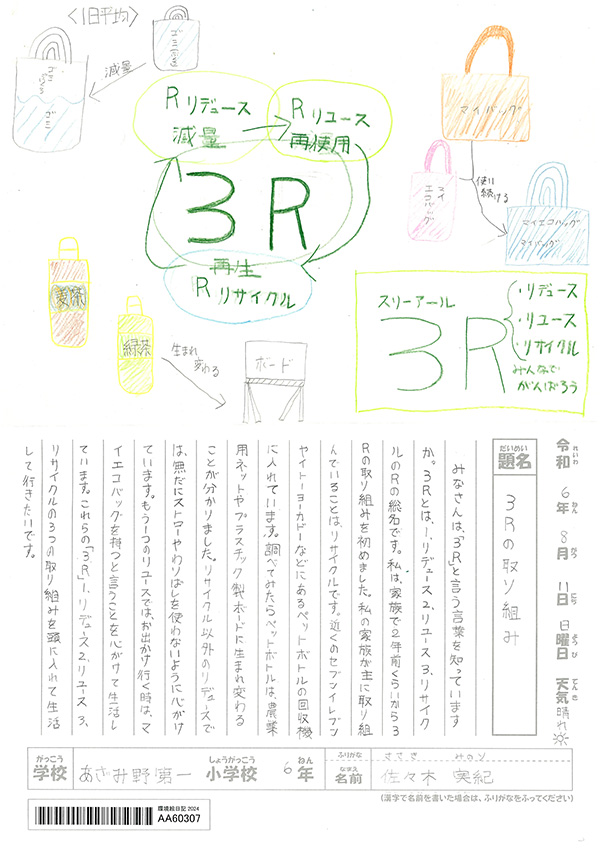 〈1日平均〉
ゴミ
ぶくろ
ゴミ
減量
ゴミぶくろ
R リデュース
減量
R リユース
再使用
3R
再生
R リサイクル
マイバッグ
マイ
エコバッグ
使い
続ける
マイエコバッグ
マイバッグ
麦茶
緑茶
生まれ
変わる
ボード
スリーアール
3R
・リデュース
・リユース
・リサイクル
みんなで
がんばろう
令和 れいわ 6年 ねん 8月 がつ 11日 にち 日曜日 ようび 天気 てんき 晴れ
題名 だいめい 3Rの取り組み
みなさんは、「3R」と言う言葉を知っています
か。3Rとは、1、リデュース2、リユース3、リサイク
ルのRの総名です。私は、家族で2年前くらいから3
Rの取り組みを初めました。私の家族が主に取り組
んでいることは、リサイクルです。近くのセブンイレブン
やイトーヨーカドーなどにあるペットボトルの回収機
に入れています。調べてみたらペットボトルは、農業
用ネットやプラスチック製ボードに生まれ変わる
ことが分かりました。リサイクル以外のリデュースで
は、無だにストローやわりばしを使わないように心がけ
ています。もう一つのリユースでは、お出かけ行く時は、マ
イエコバッグを持つと言うことを心がけて生活し
ています。これらの「3R」1、リデュース2、リユース3、
リサイクルの3つの取り組みを頭に入れて生活
して行きたいです。
学校 がっこう あざみ野第一 小学校 しょうがっこう 6年 ねん
ふりがな ささき みのり
名前 なまえ 佐々木 実紀
(漢字で名前を書いた場合は、ふりがなをふってください)
環境絵日記 2024
AA60307